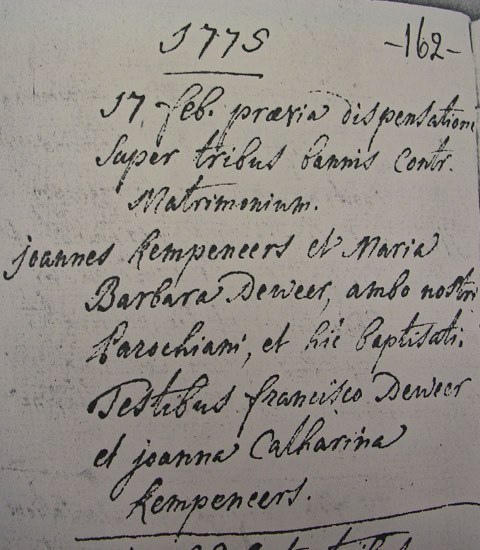 1775
-162-
17 feb. prævia dispensatione
super tribus bannis contr.
Matrimonium.
joannes kempeneers et Maria
Barbara Deweer, ambo nostri
Parochiani, et hic baptisati.
Testibus francisco Deweer
et joanna Catharina
kempeneers.